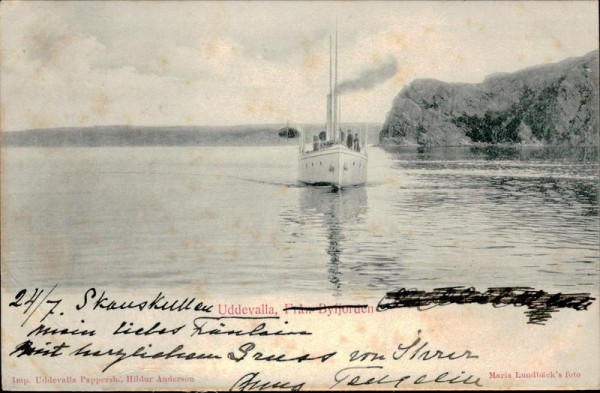 24/7. Skanskullen Uddevalla, Från Byfjorden
mein liebes Fräulein
mit herzlichem Gruss von Ihrer
Imp. Uddevalla Pappersh., Hildur Anderson
Anny
Maria Lundbäck's foto